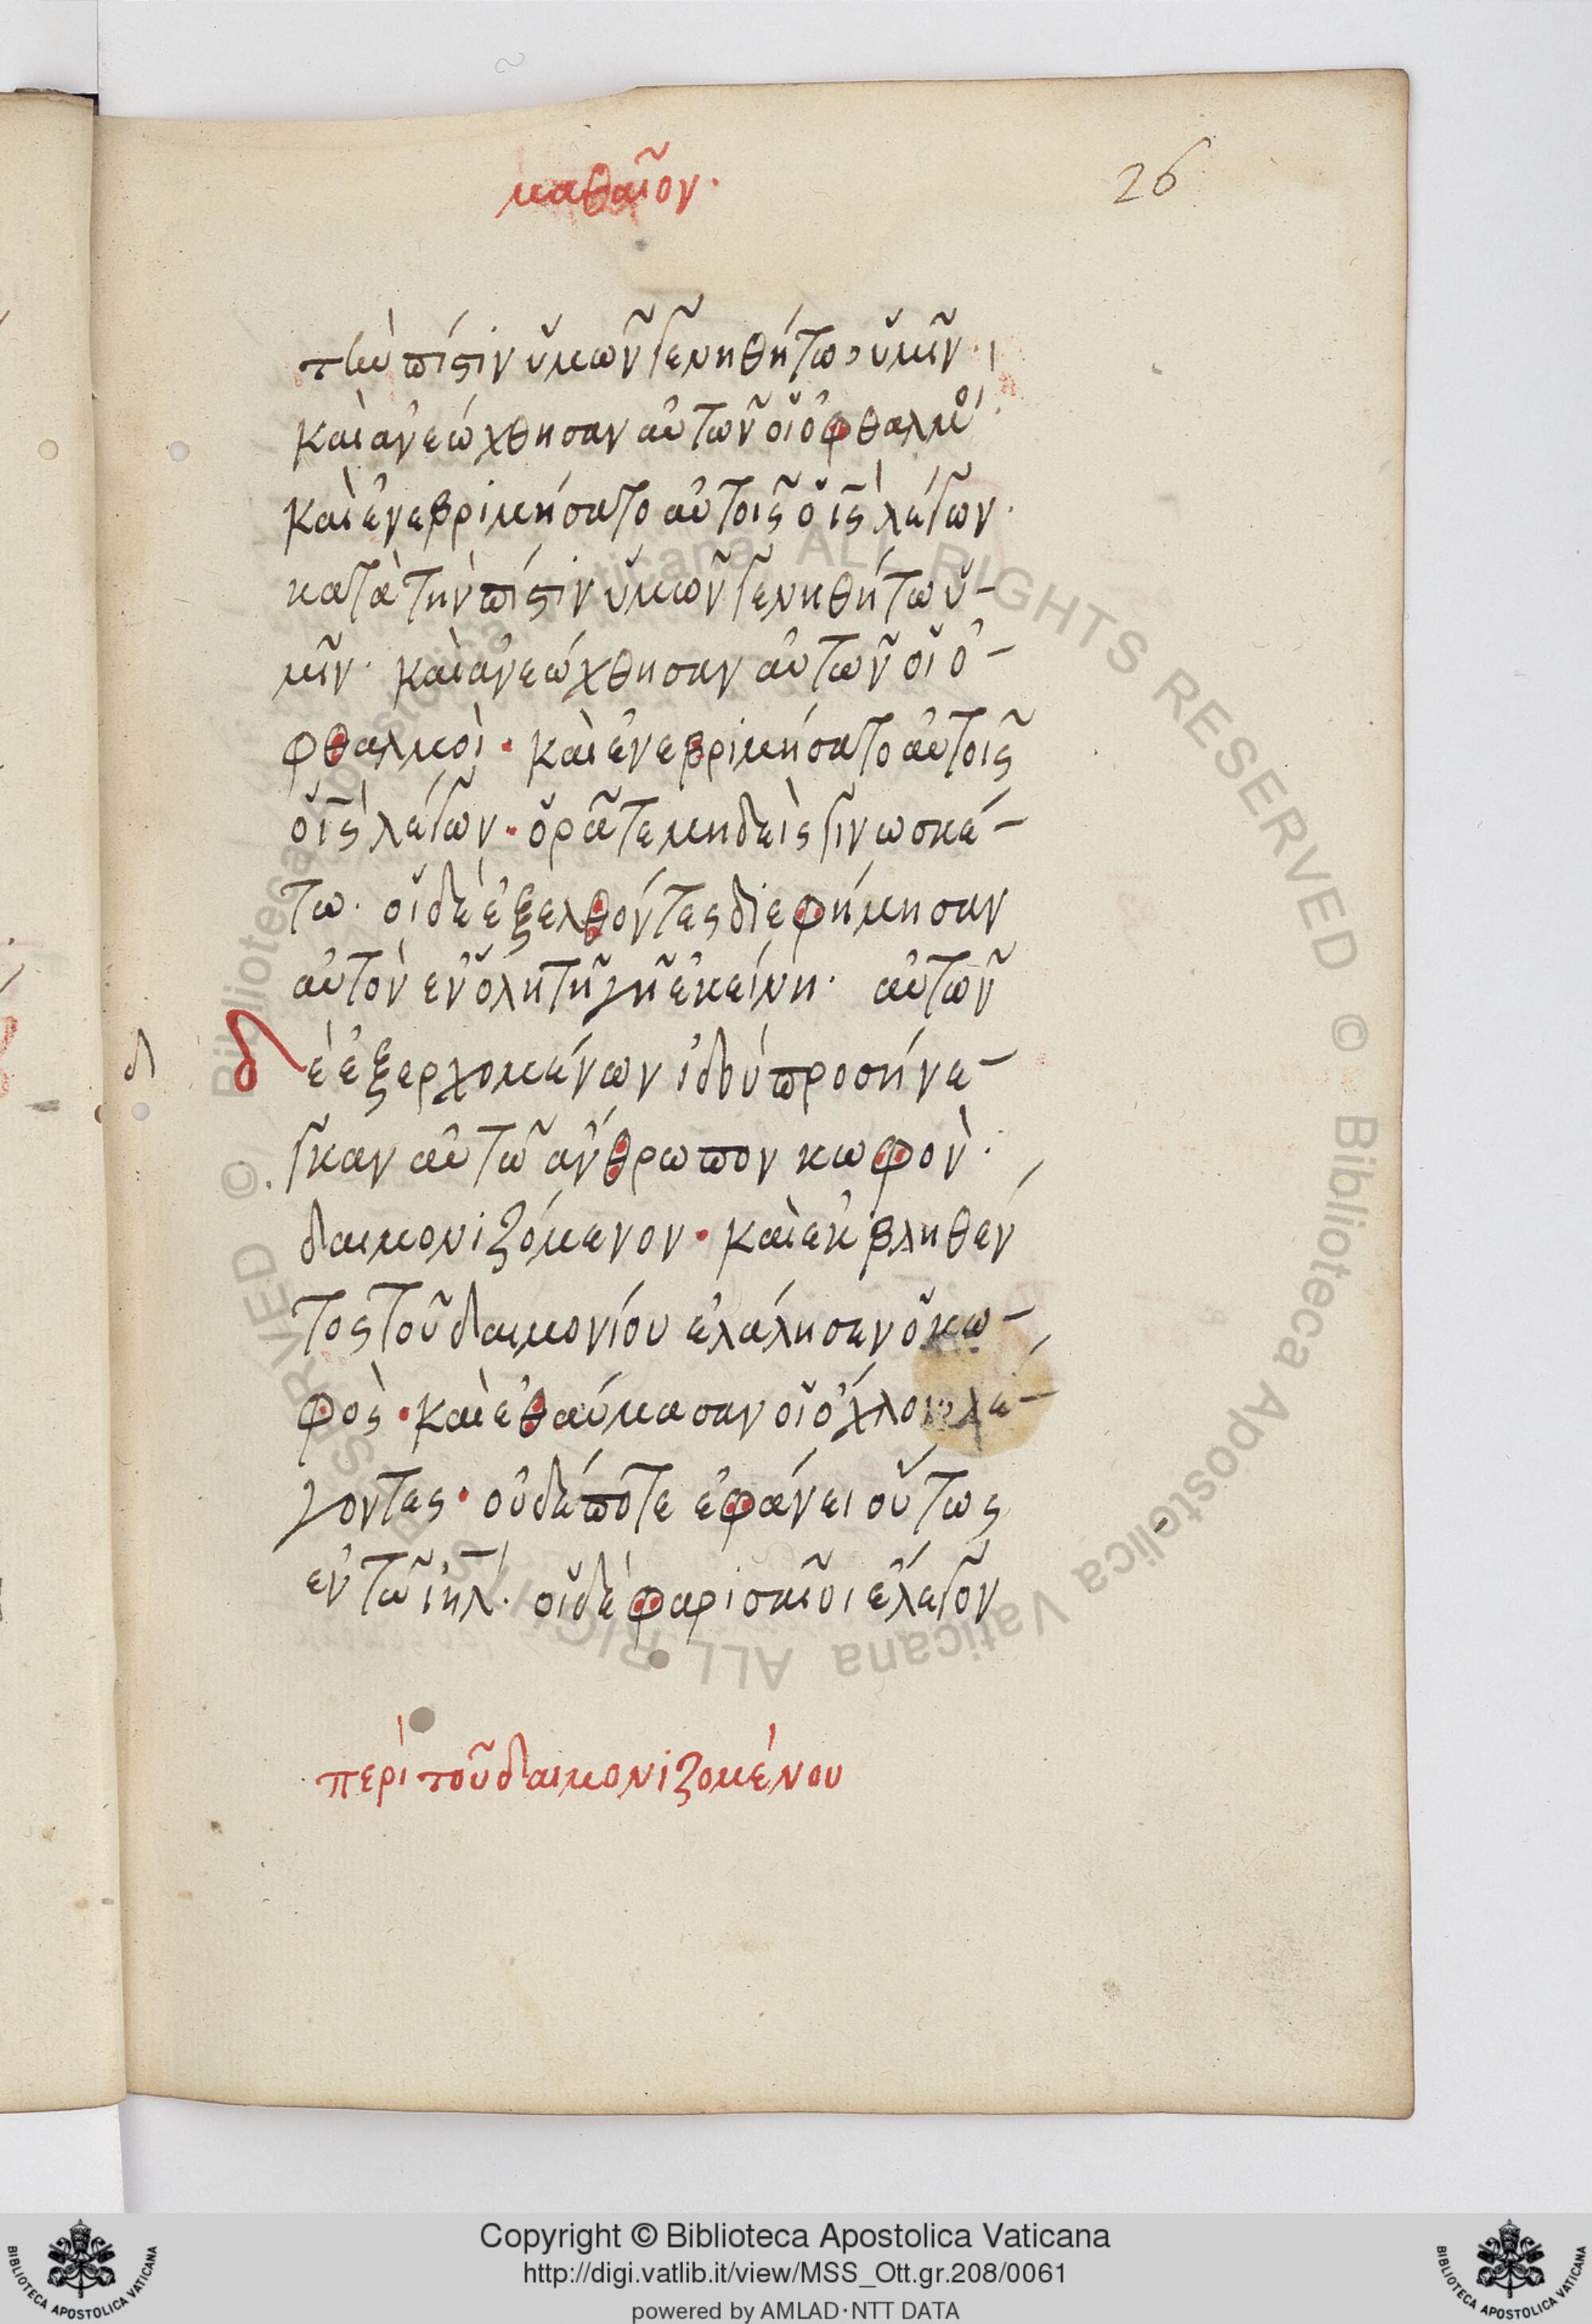 μαθαῖον·
26
τὴν πίστιν ὑμῶν γενηθήτω ὑμῖν·
καὶ ἀνεώχθησαν αὐτῶν οἱ ὀφθαλμοί·
καὶ ἐνεβριμήσατο αὐτοῖς ὁ ι̅ς̅ λέγων·
κατὰ τὴν πίστιν ὑμῶν γενηθήτω ὑ-
μῖν· καὶ ἀνεώχθησαν αὐτῶν οἱ ὀ-
φθαλμοὶ· καὶ ἐνεβριμήσατο αὐτοῖς
ὁ ι̅ς̅ λέγων· ὁρᾶτε μηδεὶς γινωσκέ-
τω· οἱ δὲ ἐξελθόντες διεφήμησαν
αὐτὸν ἐν ὅλη τῆ γῆ ἐκείνη· αὐτῶν
δὲ ἐξερχομένων ἰδού προσήνε-
δ
γκαν αὐτῶ ἄνθρωπον κωφὸν·
δαιμονιζόμενον· καὶ ἐκβληθέν
τος τοῦ δαιμονίου ἐλάλησεν ὁ κω-
φὸς· καὶ ἐθαύμασαν οἱ ὄχλοι λέ-
γοντες· οὐδέποτε ἐφάνει οὕτως
ἐν τῶ ι̅η̅λ̅· οἱ δὲ φαρισαῖοι ἔλεγον
περὶ τοῦ δαιμονιζομένου
© Biblioteca Apostolica Vaticana ALL RIGHTS RESERVED © Biblioteca Apostolica Vaticana ALL RIGHTS RESERVED
Copyright © Biblioteca Apostolica Vaticana
http://digi.vatlib.it/view/MSS_Ott.gr.208/0061
powered by AMLAD·NTT DATA
BIBLIOTECA APOSTOLICA VATICANA
BIBLIOTECA APOSTOLICA VATICANA